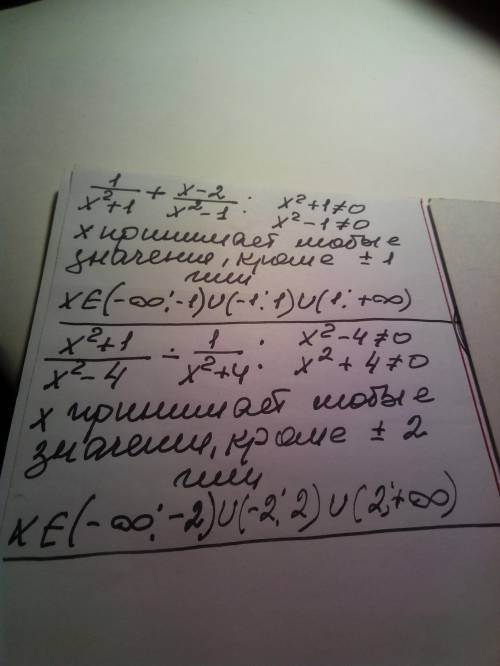 1/(x²+1) + (x-2)/(x²-1): x²+1≠0
x²-1≠0
x принимает любые
значения, кроме ±1
или
x∈(-∞;-1)∪(-1;1)∪(1;+∞)
(x²+1)/(x²-4) - 1/(x²+4): x²-4≠0
x²+4≠0
x принимает любые
значения, кроме ±2
или
x∈(-∞;-2)∪(-2;2)∪(2;+∞)